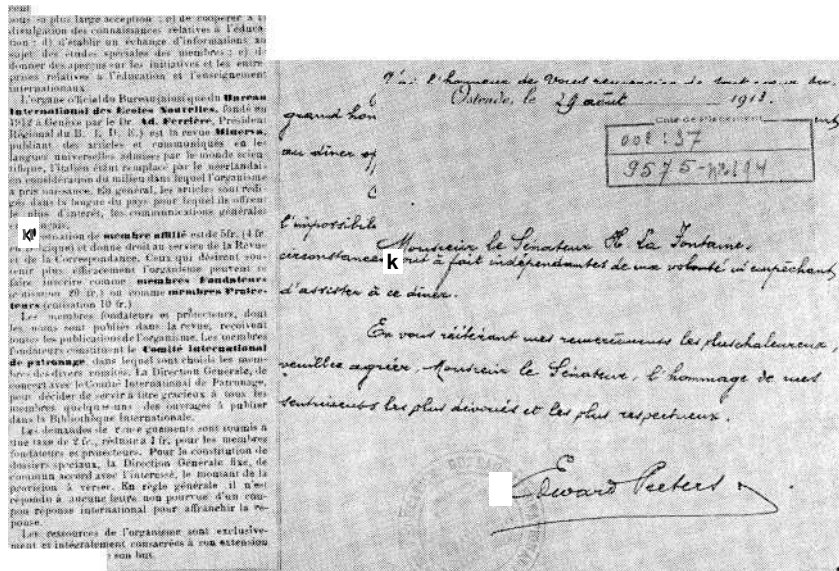 sous sa plus large acception ; c) de coopérer à la
divulgation des connaissances relatives à l'éduca-
tion ; d) d'établir un échange d'informations au
sujet des études spéciales des membres ; e) de
donner des aperçus sur les initiatives et les entre-
prises relatives à l'éducation et l'enseignement
internationaux.
L'organe officiel du Bureau ainsi que du Bureau
International des Ecoles Nouvelles, fondé en
1912 à Genève par le Dr. Ad. Ferrière, Président
Régional du B. I. D. E.) est la revue Minerva,
publiant des articles et communiqués en les
langues universelles admises par le monde scien-
tifique, l'italien étant remplacé par le néerlandais
en considération du milieu dans lequel l'organisme
a pris naissance. En général, les articles sont rédi-
gés dans la langue du pays pour lequel ils offrent
le plus d'intérêt, les communications générales
français.
K
de membre affilié est de 5fr. (4 fr.
et donne droit au service de la Revue
et de la Correspondance. Ceux qui désirent sou-
tenir plus efficacement l'organisme peuvent se
faire inscrire comme membres Fondateurs
(cotisation 20 fr.) ou comme membres Protec-
teurs (cotisation 10 fr.)
Les membres fondateurs et protecteurs, dont
les noms sont publiés dans la revue, reçoivent
toutes les publications de l'organisme. Les membres
fondateurs constituent le Comité International
de patronage, dans lequel sont choisis les mem-
bres des divers comités. La Direction Générale, de
concert avec le Comité International de Patronage,
peut décider de servir à titre gracieux à tous les
membres quelques-uns des ouvrages à publier
dans la Bibliothèque Internationale.
Les demandes de renseignements sont soumis à
une taxe de 2 fr., réduite à 1 fr. pour les membres
fondateurs et protecteurs. Pour la constitution de
dossiers spéciaux, la Direction Générale fixe, de
commun accord avec l'intéressé, le montant de la
provision à verser. En règle générale il n'est
répondu à aucune lettre non pourvue d'un cou-
pon réponse international pour affranchir la ré-
ponse.
Les ressources de l'organisme sont exclusive-
ment et intégralement consacrées à son extension
son but.
J'ai l'honneur de Vous remercier de tout cœur du
Ostende, le 29 août 1913.
grand hon
Cote de Placement
002 : 37
au dîner of
9575
l'impossibile
Monsieur le Sénateur H. La Fontaine,
circonstances k tout à fait indépendantes de ma volonté m'empêchant
d'assister à ce dîner.
En vous réitérant mes remerciements les plus chaleureux,
veuillez agréer, Monsieur le Sénateur, l'hommage de mes
sentiments les plus dévoués et les plus respectueux.
Edward Peeters